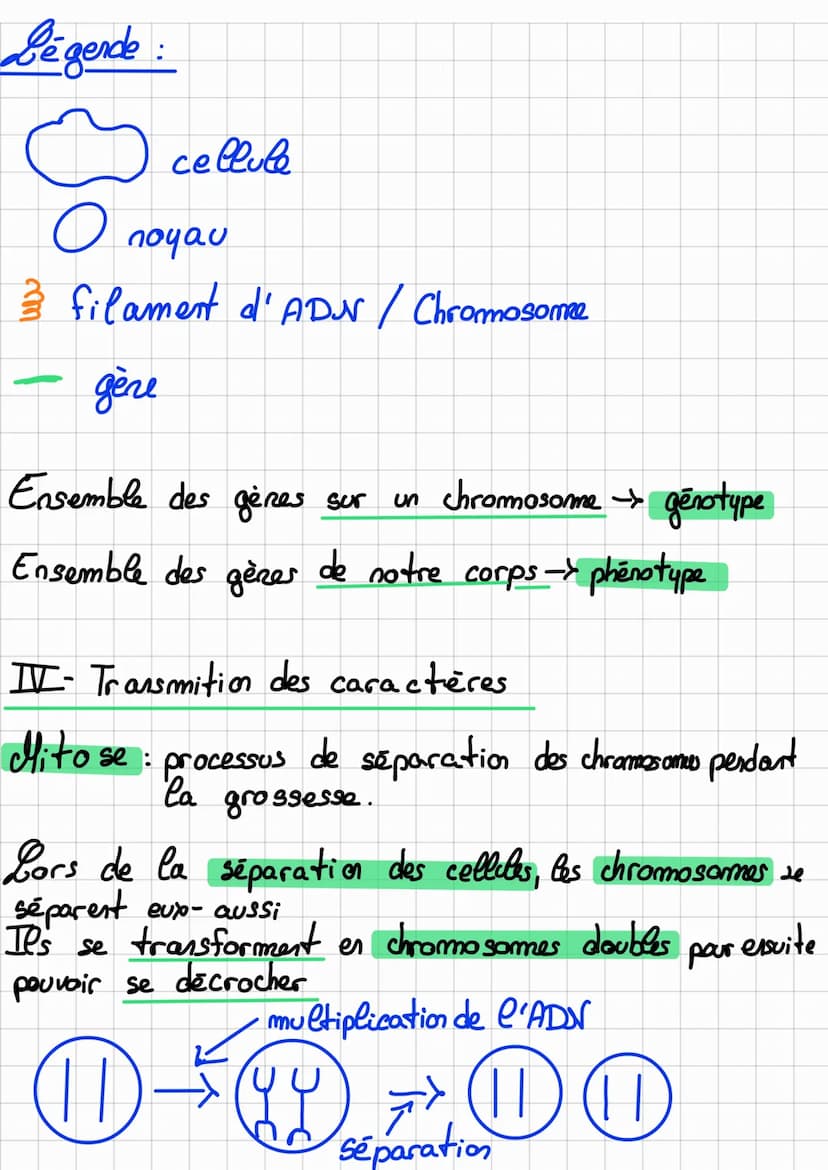 Légende :
cellule
noyau
filament d'ADN / Chromosome
gène
Ensemble des gènes sur un chromosome → génotype
Ensemble des gènes de notre corps → phénotype
IV - Transmition des caractères
Mitose : processus de séparation des chromosomes pendant
la grossesse.
Lors de la séparation des cellules, les chromosomes se
séparent eux-aussi
Ils se transforment en chromosomes doubles pour ensuite
pouvoir se décrocher
multiplication de l'ADN
séparation